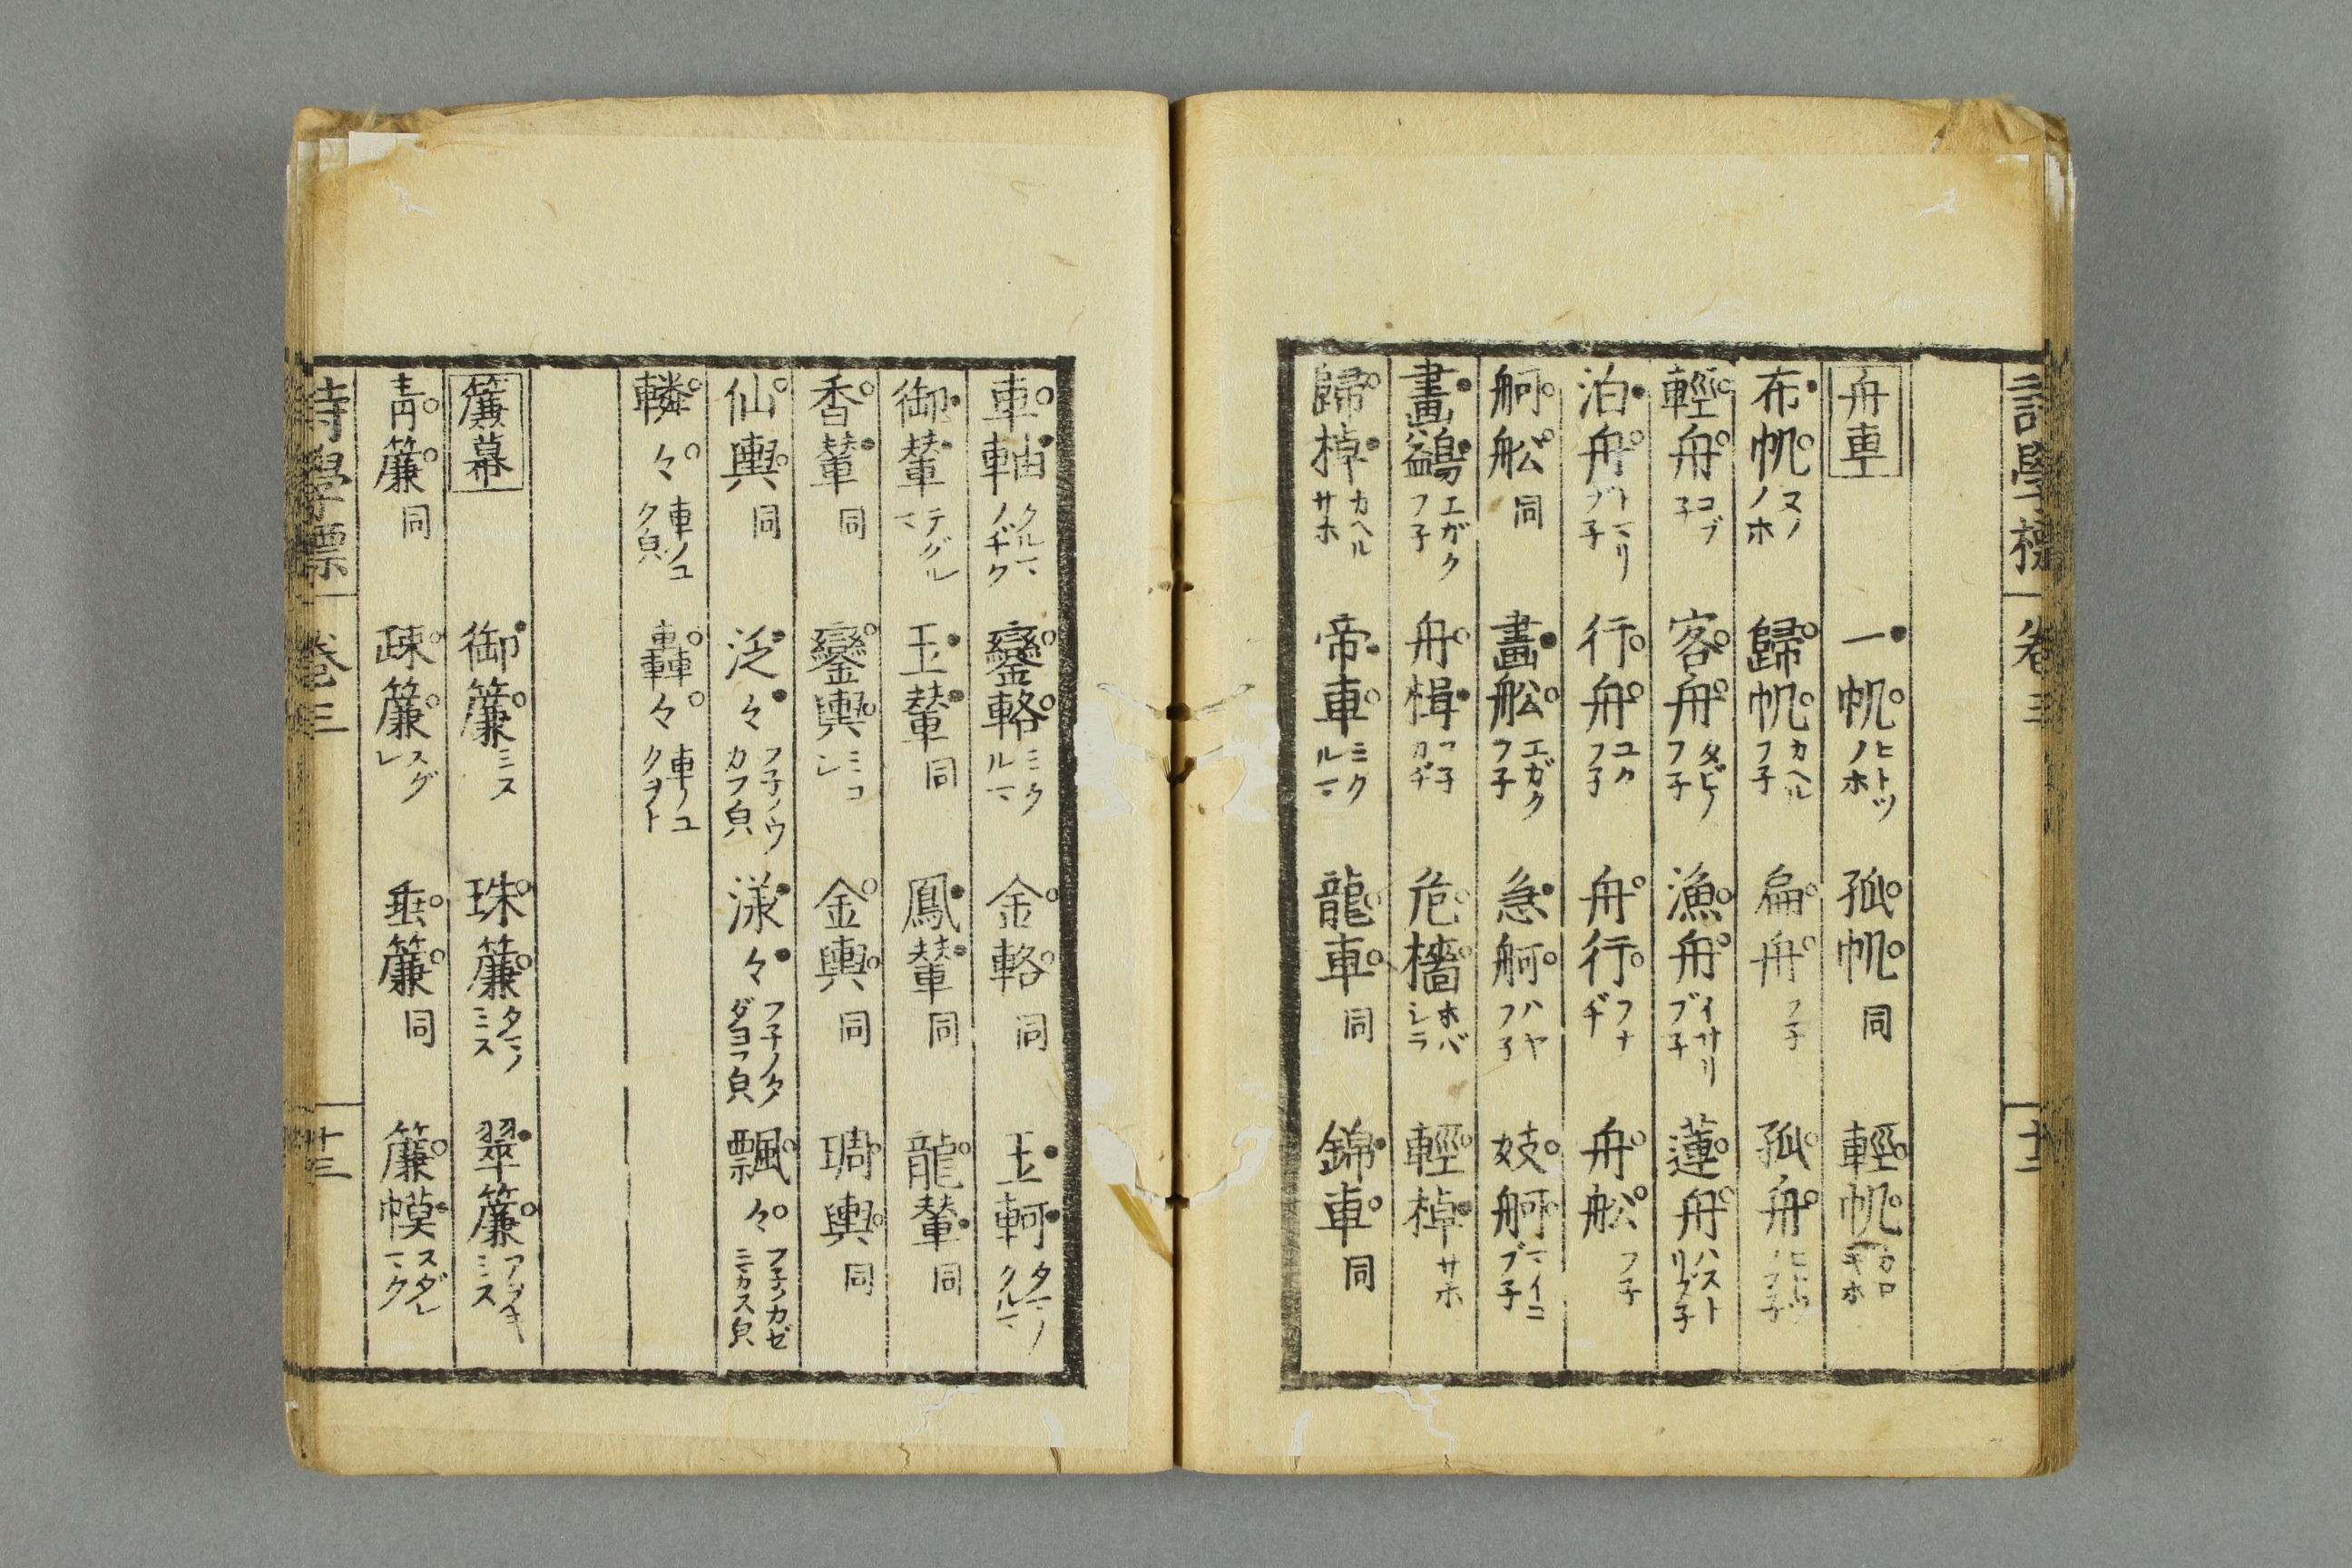 詩學標 卷三 十二
舟車 一帆ヒトツノホ 孤帆同 輕帆カロキホ
布帆ヌノノホ 歸帆カヘルフ子 扁舟フ子 孤舟
輕舟コブ子 客舟タビノフ子 漁舟イサリブ子 蓮舟ハストリブ子
泊舟トマリブ子 行舟ユクフ子 舟行フナヂ 舟舩フ子
舸舩同 畫舩エガクフ子 急舸ハヤフ子 妓舸マイコブ子
畫鷁エガクフ子 舟楫フ子カヂ 危檣ホバシラ 輕棹サホ
歸棹カヘルサホ 帝車ミクルマ 龍車同 錦車同
車軸クルマノヂク 鑾輅ミクルマ 金輅同 玉軻タマノクルマ
御輦テグルマ 玉輦同 鳳輦同 龍輦同
香輦同 鑾輿ミコシ 金輿同 琱輿同
仙輿同 泛々フ子ノウカフ皃 漾々フ子ノタダヨフ皃 飄々フ子ノカゼニマカス皃
轔々車ノユク皃 轟々車ノユクヲト
簾幕 御簾ミス 珠簾タマノミス 翠簾アヲキミス
青簾同 疎簾スダレ 垂簾同 簾幙スダレマク
詩學標 卷三 十三